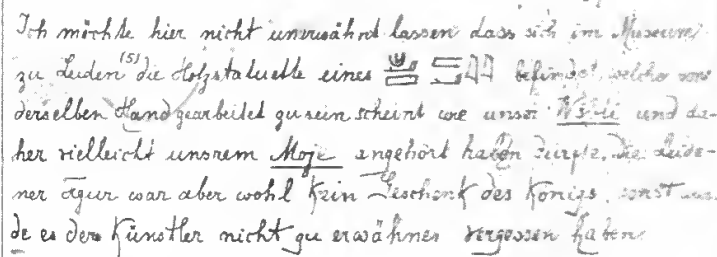 Ich möchte hier nicht unerwähnt lassen dass sich im Museum
zu Leiden (5) die Holzstatuette eines befindet, welche von
derselben Hand gearbeitet zu sein scheint wie unser und da-
her vielleicht unsrem Moje angehört haben dürfte. Die Leide-
ner Figur war aber wohl kein Geschenk des Königs, sonst wür-
de es der Künstler nicht zu erwähnen vergessen haben